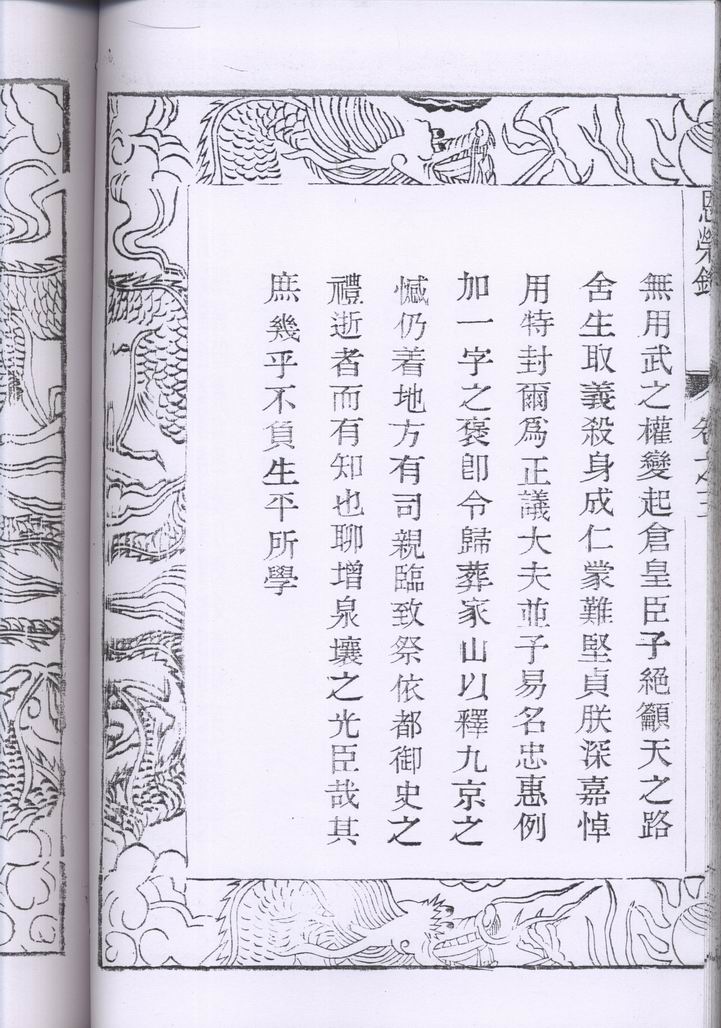 恩榮錄 卷之三
無用武之權變起倉皇臣子絕籲天之路
舍生取義殺身成仁蒙難堅貞朕深嘉悼
用特封爾爲正議大夫並子易名忠惠例
加一字之褒卽令歸葬家山以釋九京之
憾仍着地方有司親臨致祭依都御史之
禮逝者而有知也聊增泉壤之光臣哉其
庶幾乎不負生平所學